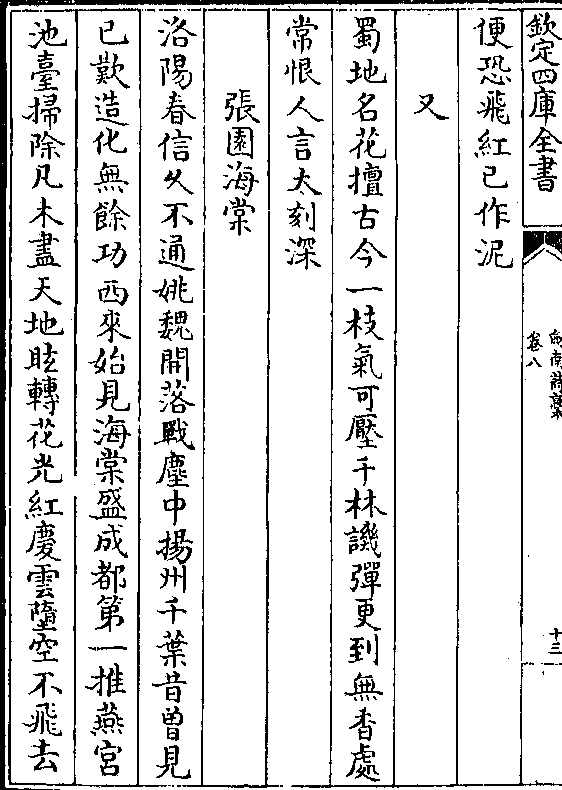 欽定四庫全書
劍南詩藁
卷八
十三
便恐飛紅已作泥
又
蜀地名花擅古今一枝氣可壓千林譏彈更到無香處
常恨人言太刻深
張園海棠
洛陽春信久不通姚魏開落戰塵中揚州千葉昔曾見
已歎造化無餘功西來始見海棠盛成都第一推燕宮
池臺掃除凡木盡天地眩轉花光紅慶雲墮空不飛去